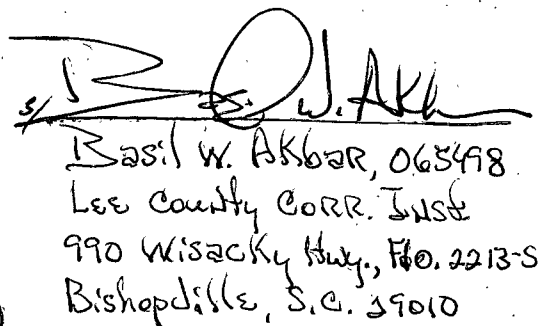 s/ B. W. Akb
Basil W. Akbar, 065498
Lee County Corr. Inst
990 Wisacky Hwy., Flo. 2213-S
Bishopville, S.C. 29010